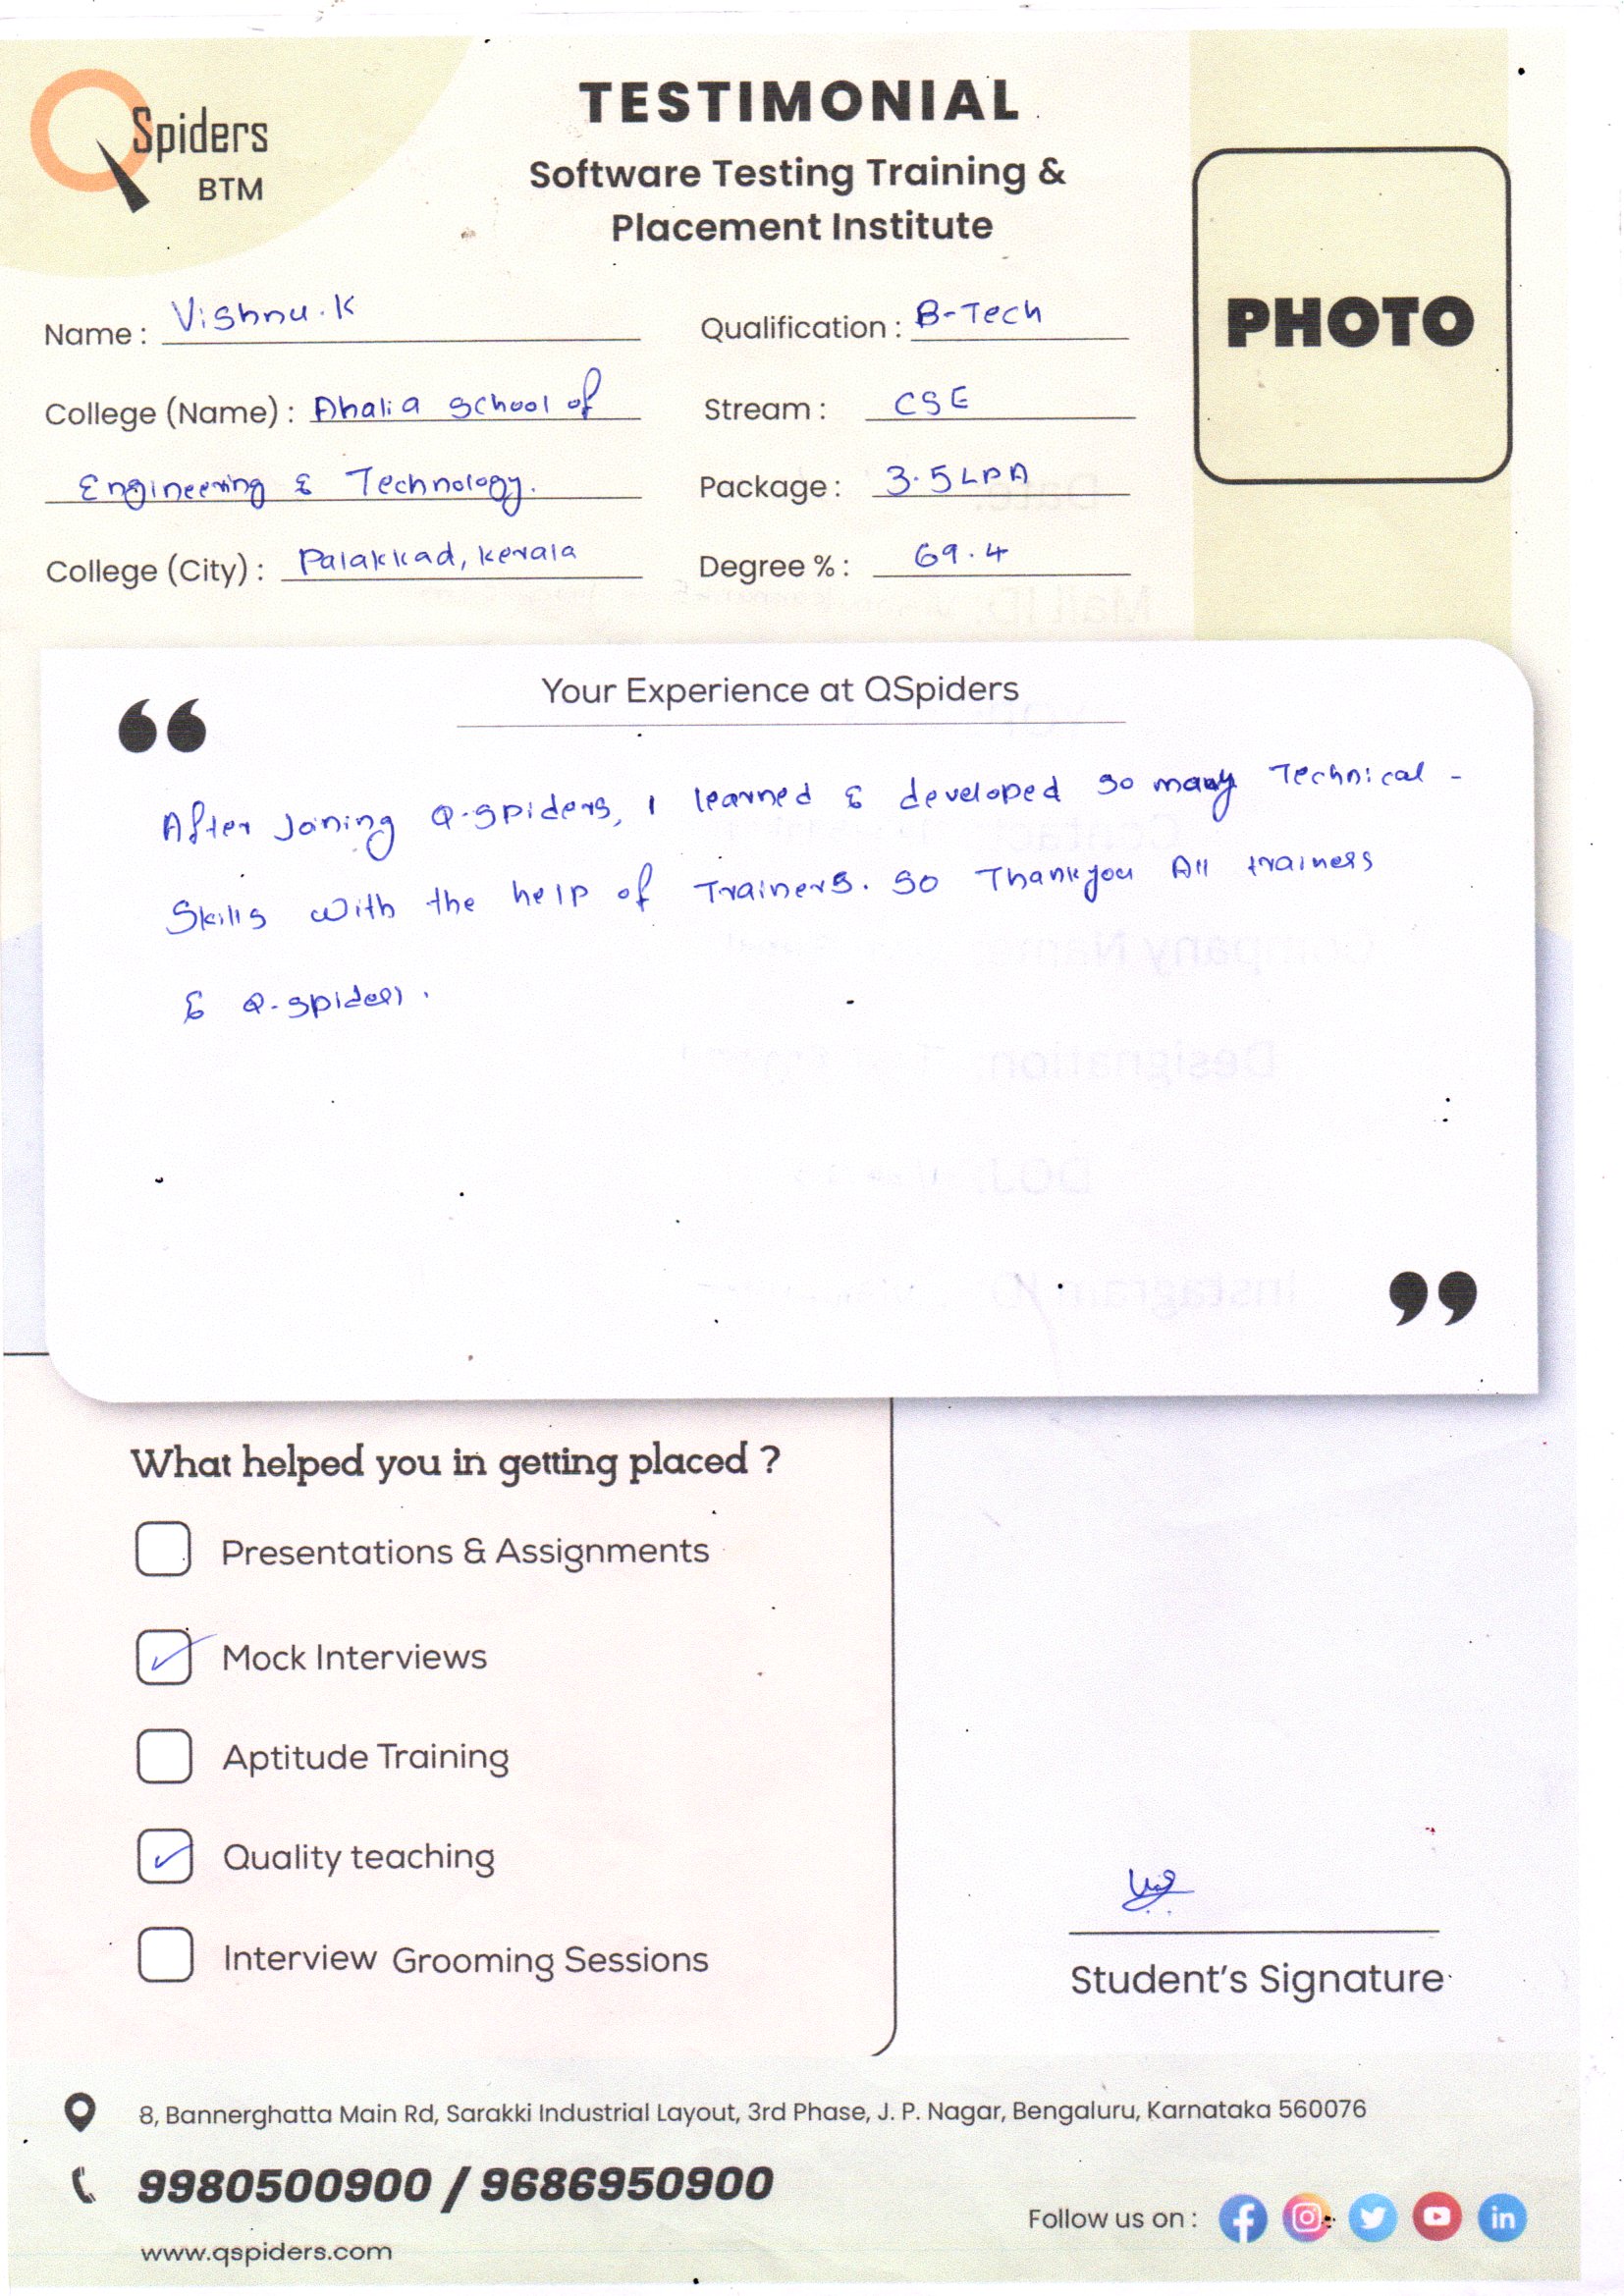 QSpiders
BTM
TESTIMONIAL
Software Testing Training &
Placement Institute
PHOTO
Name : Vishnu.K
Qualification : B-Tech
College (Name) : Ahalia School of
Stream : CSE
Engineering & Technology.
Package : 3.5 LPA
College (City) : Palakkad, Kerala
Degree % : 69.4
Your Experience at QSpiders
After Joining Q-spiders, I learned & developed so many Technical -
Skills with the help of Trainers. So Thankyou All trainers
& Q-spiders.
What helped you in getting placed ?
Presentations & Assignments
Mock Interviews
Aptitude Training
Quality teaching
Interview Grooming Sessions
Student's Signature
8, Bannerghatta Main Rd, Sarakki Industrial Layout, 3rd Phase, J. P. Nagar, Bengaluru, Karnataka 560076
9980500900 / 9686950900
Follow us on :
www.qspiders.com